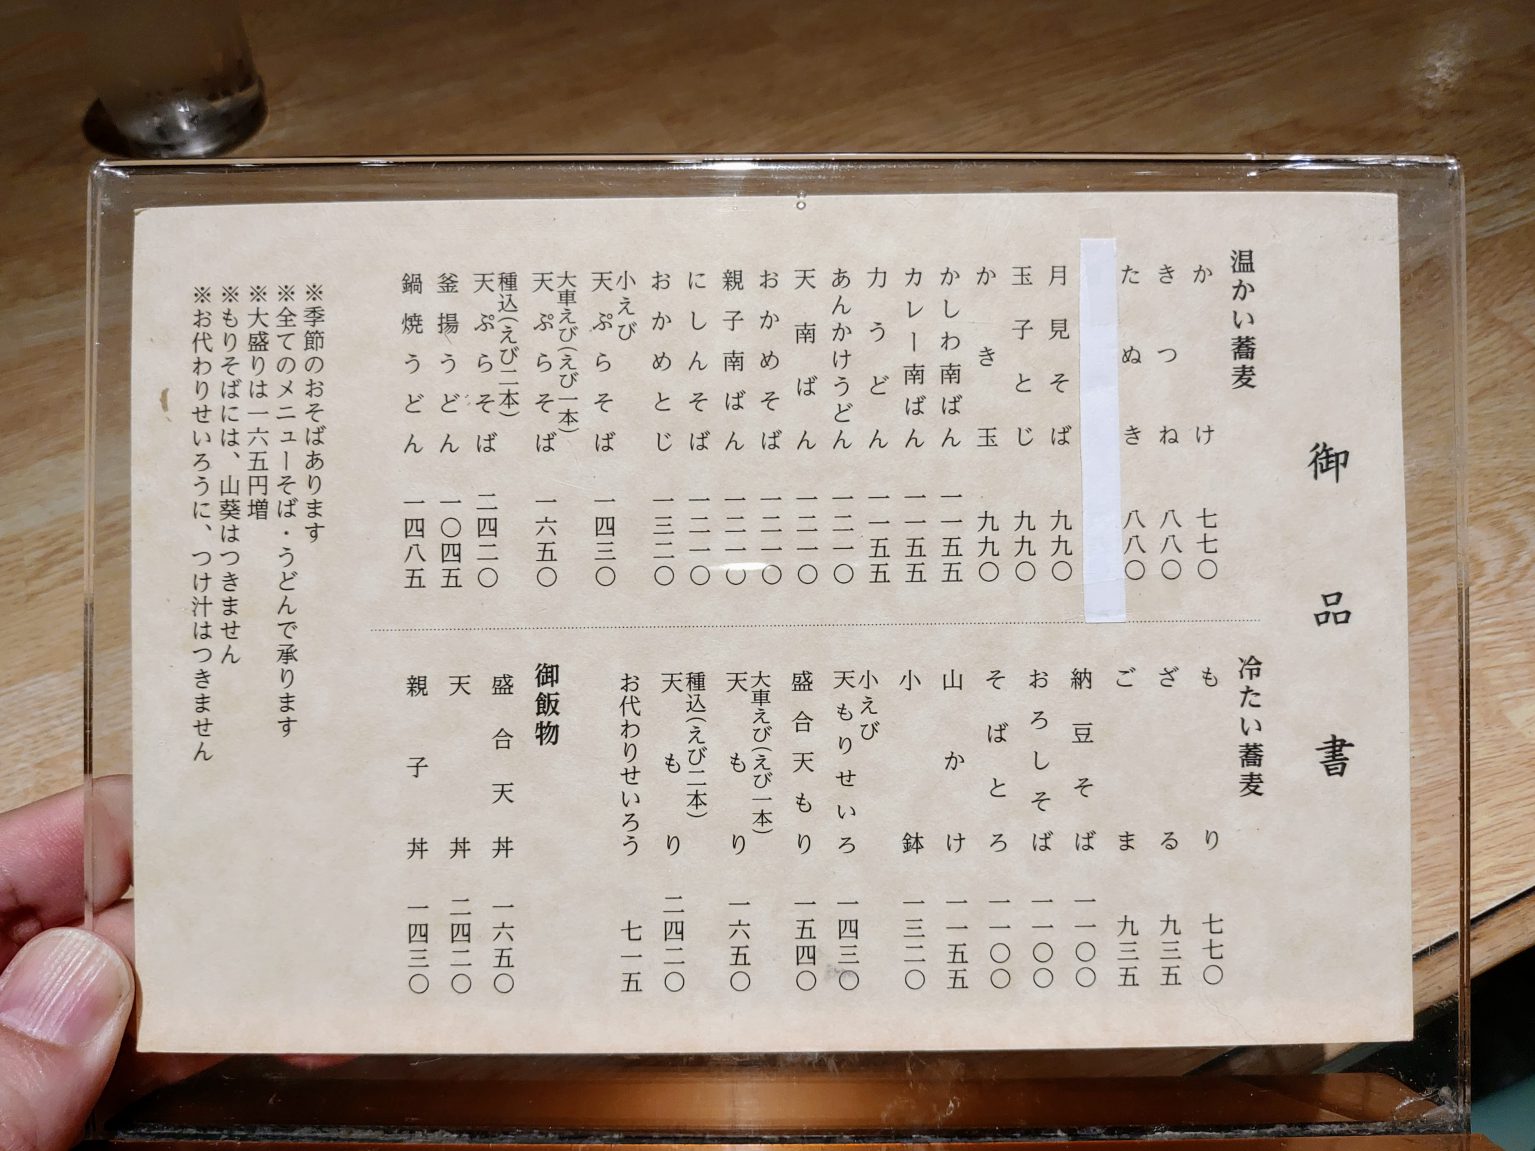 御品書
温かい蕎麦
かけ 七七〇
きつね 八八〇
たぬき 八八〇
月見そば 九九〇
玉子とじ 九九〇
かき玉 九九〇
かしわ南ばん 一一五五
カレー南ばん 一一五五
力うどん 一一五五
あんかけうどん 一二一〇
天南ばん 一二一〇
おかめそば 一二一〇
親子南ばん 一二一〇
にしんそば 一二一〇
おかめとじ 一三二〇
小えび
天ぷらそば 一四三〇
大車えび(えび一本)
天ぷらそば 一六五〇
種込(えび二本)
天ぷらそば 二四二〇
釜揚うどん 一〇四五
鍋焼うどん 一四八五
冷たい蕎麦
もり 七七〇
ざる 九三五
ごま 九三五
納豆そば 一一〇〇
おろしそば 一一〇〇
そばとろ 一一〇〇
山かけ 一一五五
小鉢 一三二〇
小えび
天もりせいろ 一四三〇
盛合天もり 一五四〇
大車えび(えび一本)
天もり 一六五〇
種込(えび二本)
天もり 二四二〇
お代わりせいろう 七一五
御飯物
盛合天丼 一六五〇
天丼 二四二〇
親子丼 一四三〇
※季節のおそばあります
※全てのメニューそば・うどんで承ります
※大盛りは一六五円増
※もりそばには、山葵はつきません
※お代わりせいろうに、つけ汁はつきません